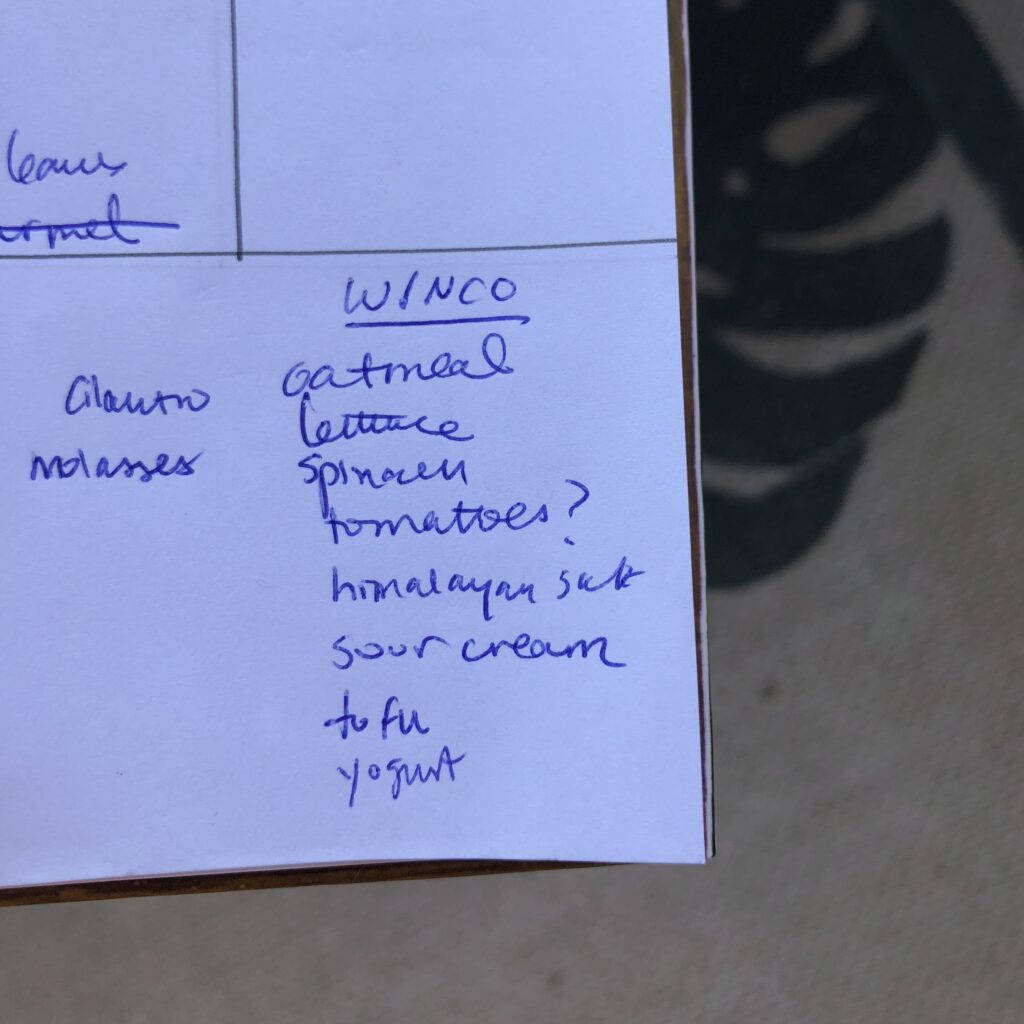 leaves
WINCO
cilantro oatmeal
lettuce
molasses spinach
tomatoes?
himalayan salt
sour cream
tofu
yogurt